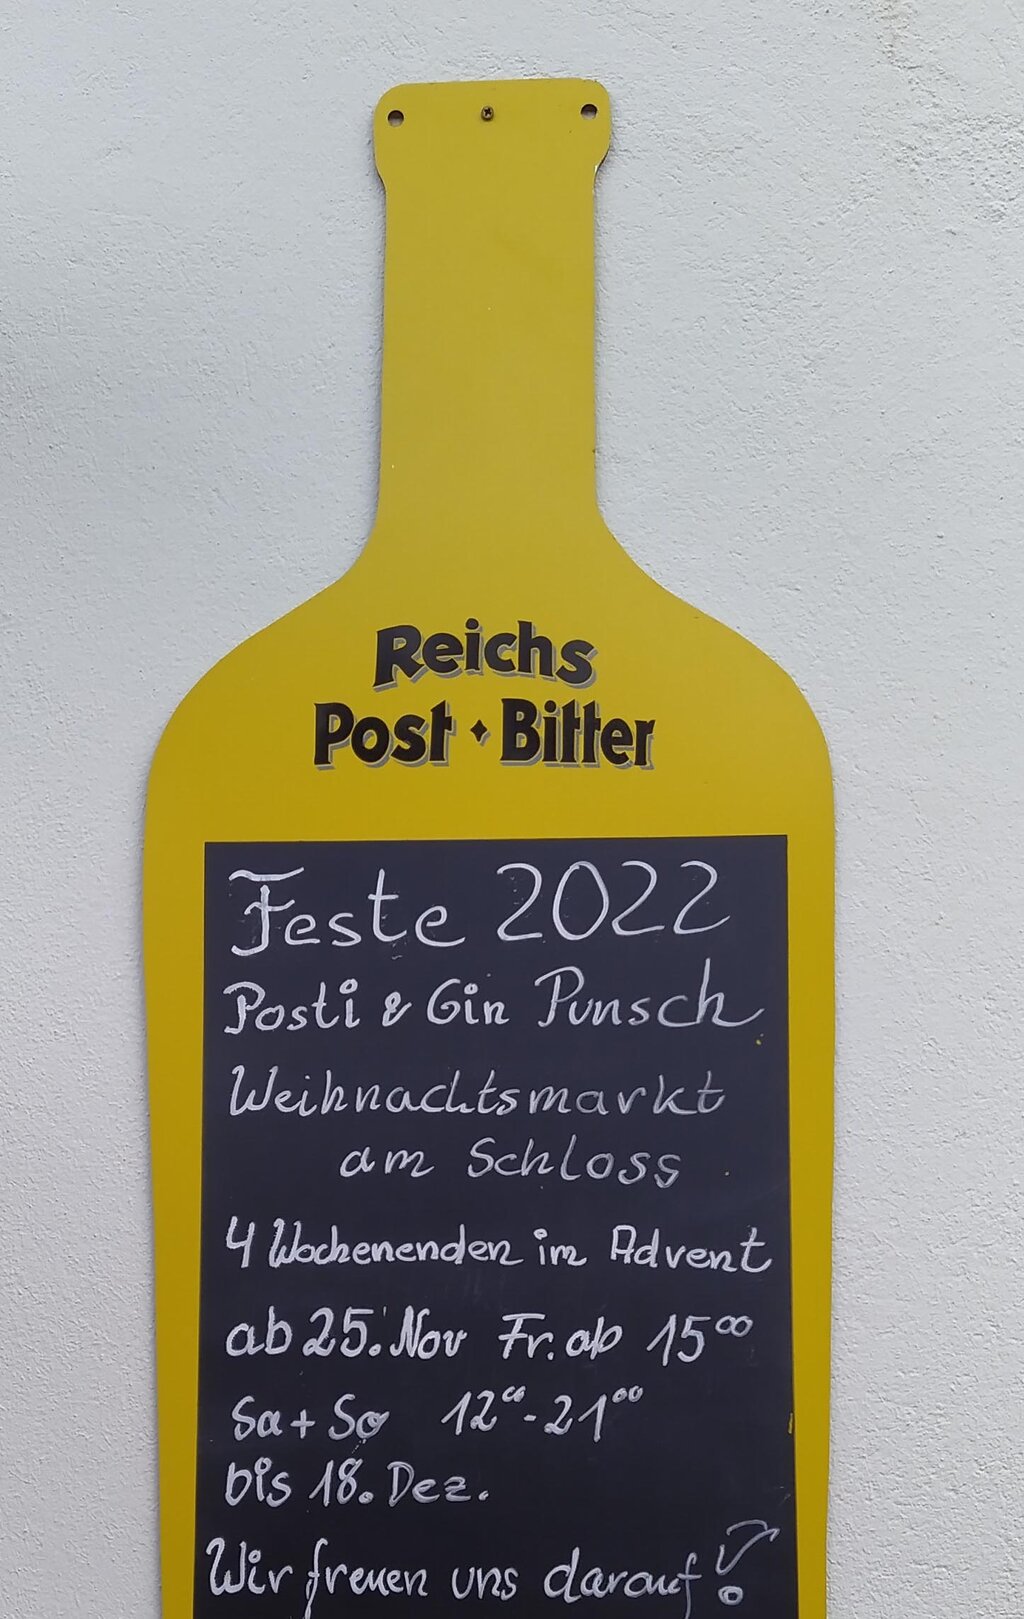 Reichs
Post · Bitter
Feste 2022
Posti & Gin Punsch
Weihnachtsmarkt
am Schloss
4 Wochenenden im Advent
ab 25. Nov Fr. ab 15⁰⁰
Sa + So 12⁰⁰ - 21⁰⁰
bis 18. Dez.
Wir freuen uns darauf!